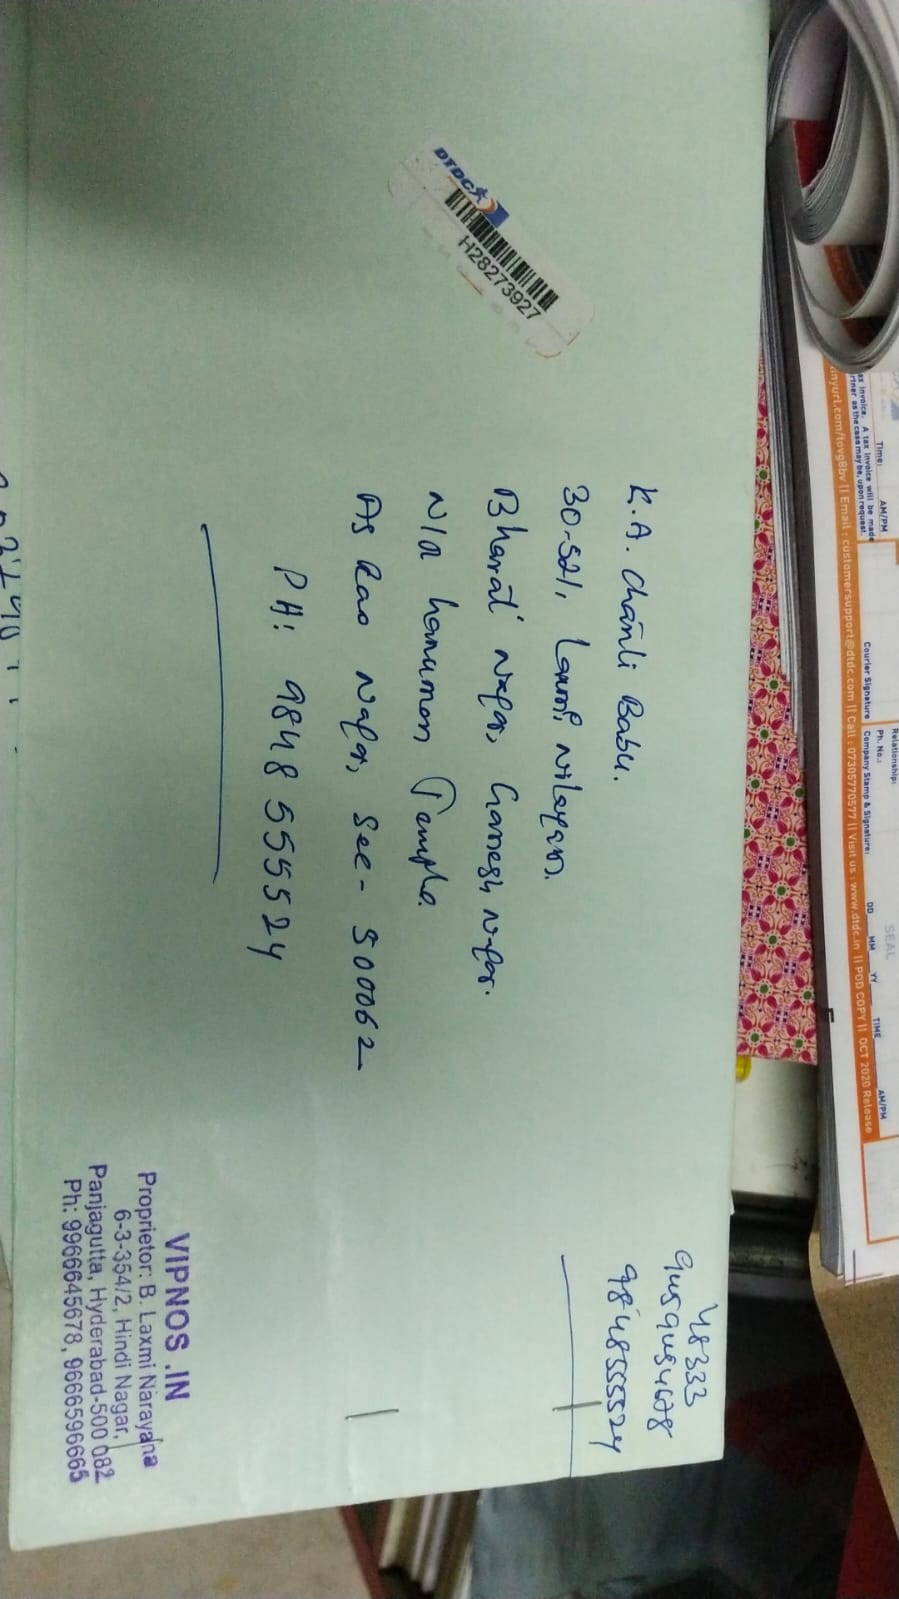 DTDC
H28273927
K.A. Chanti Babu.
30-521, Laxmi Nilayam.
Bharat Nagar, Ganesh Nagar.
N/a Hanuman Temple.
AS Rao Nagar, Sec- 500062
PH: 9848 555524
48333
9848555524
VIPNOS .IN
Proprietor: B. Laxmi Narayana
6-3-354/2, Hindi Nagar,
Panjagutta, Hyderabad-500 082
Ph: 9966645678, 9666596665
Time: AM/PM
ax invoice. A tax invoice will be made
rtner as the case may be, upon request.
Courier Signature
Relationship:
Ph. No.:
Company Stamp & Signature:
SEAL
DD MM YY TIME AM/PM
inyurl.com/tovg8bv || Email : customersupport@dtdc.com || Call : 07305770577 || Visit us : www.dtdc.in || POD COPY || OCT 2020 Release